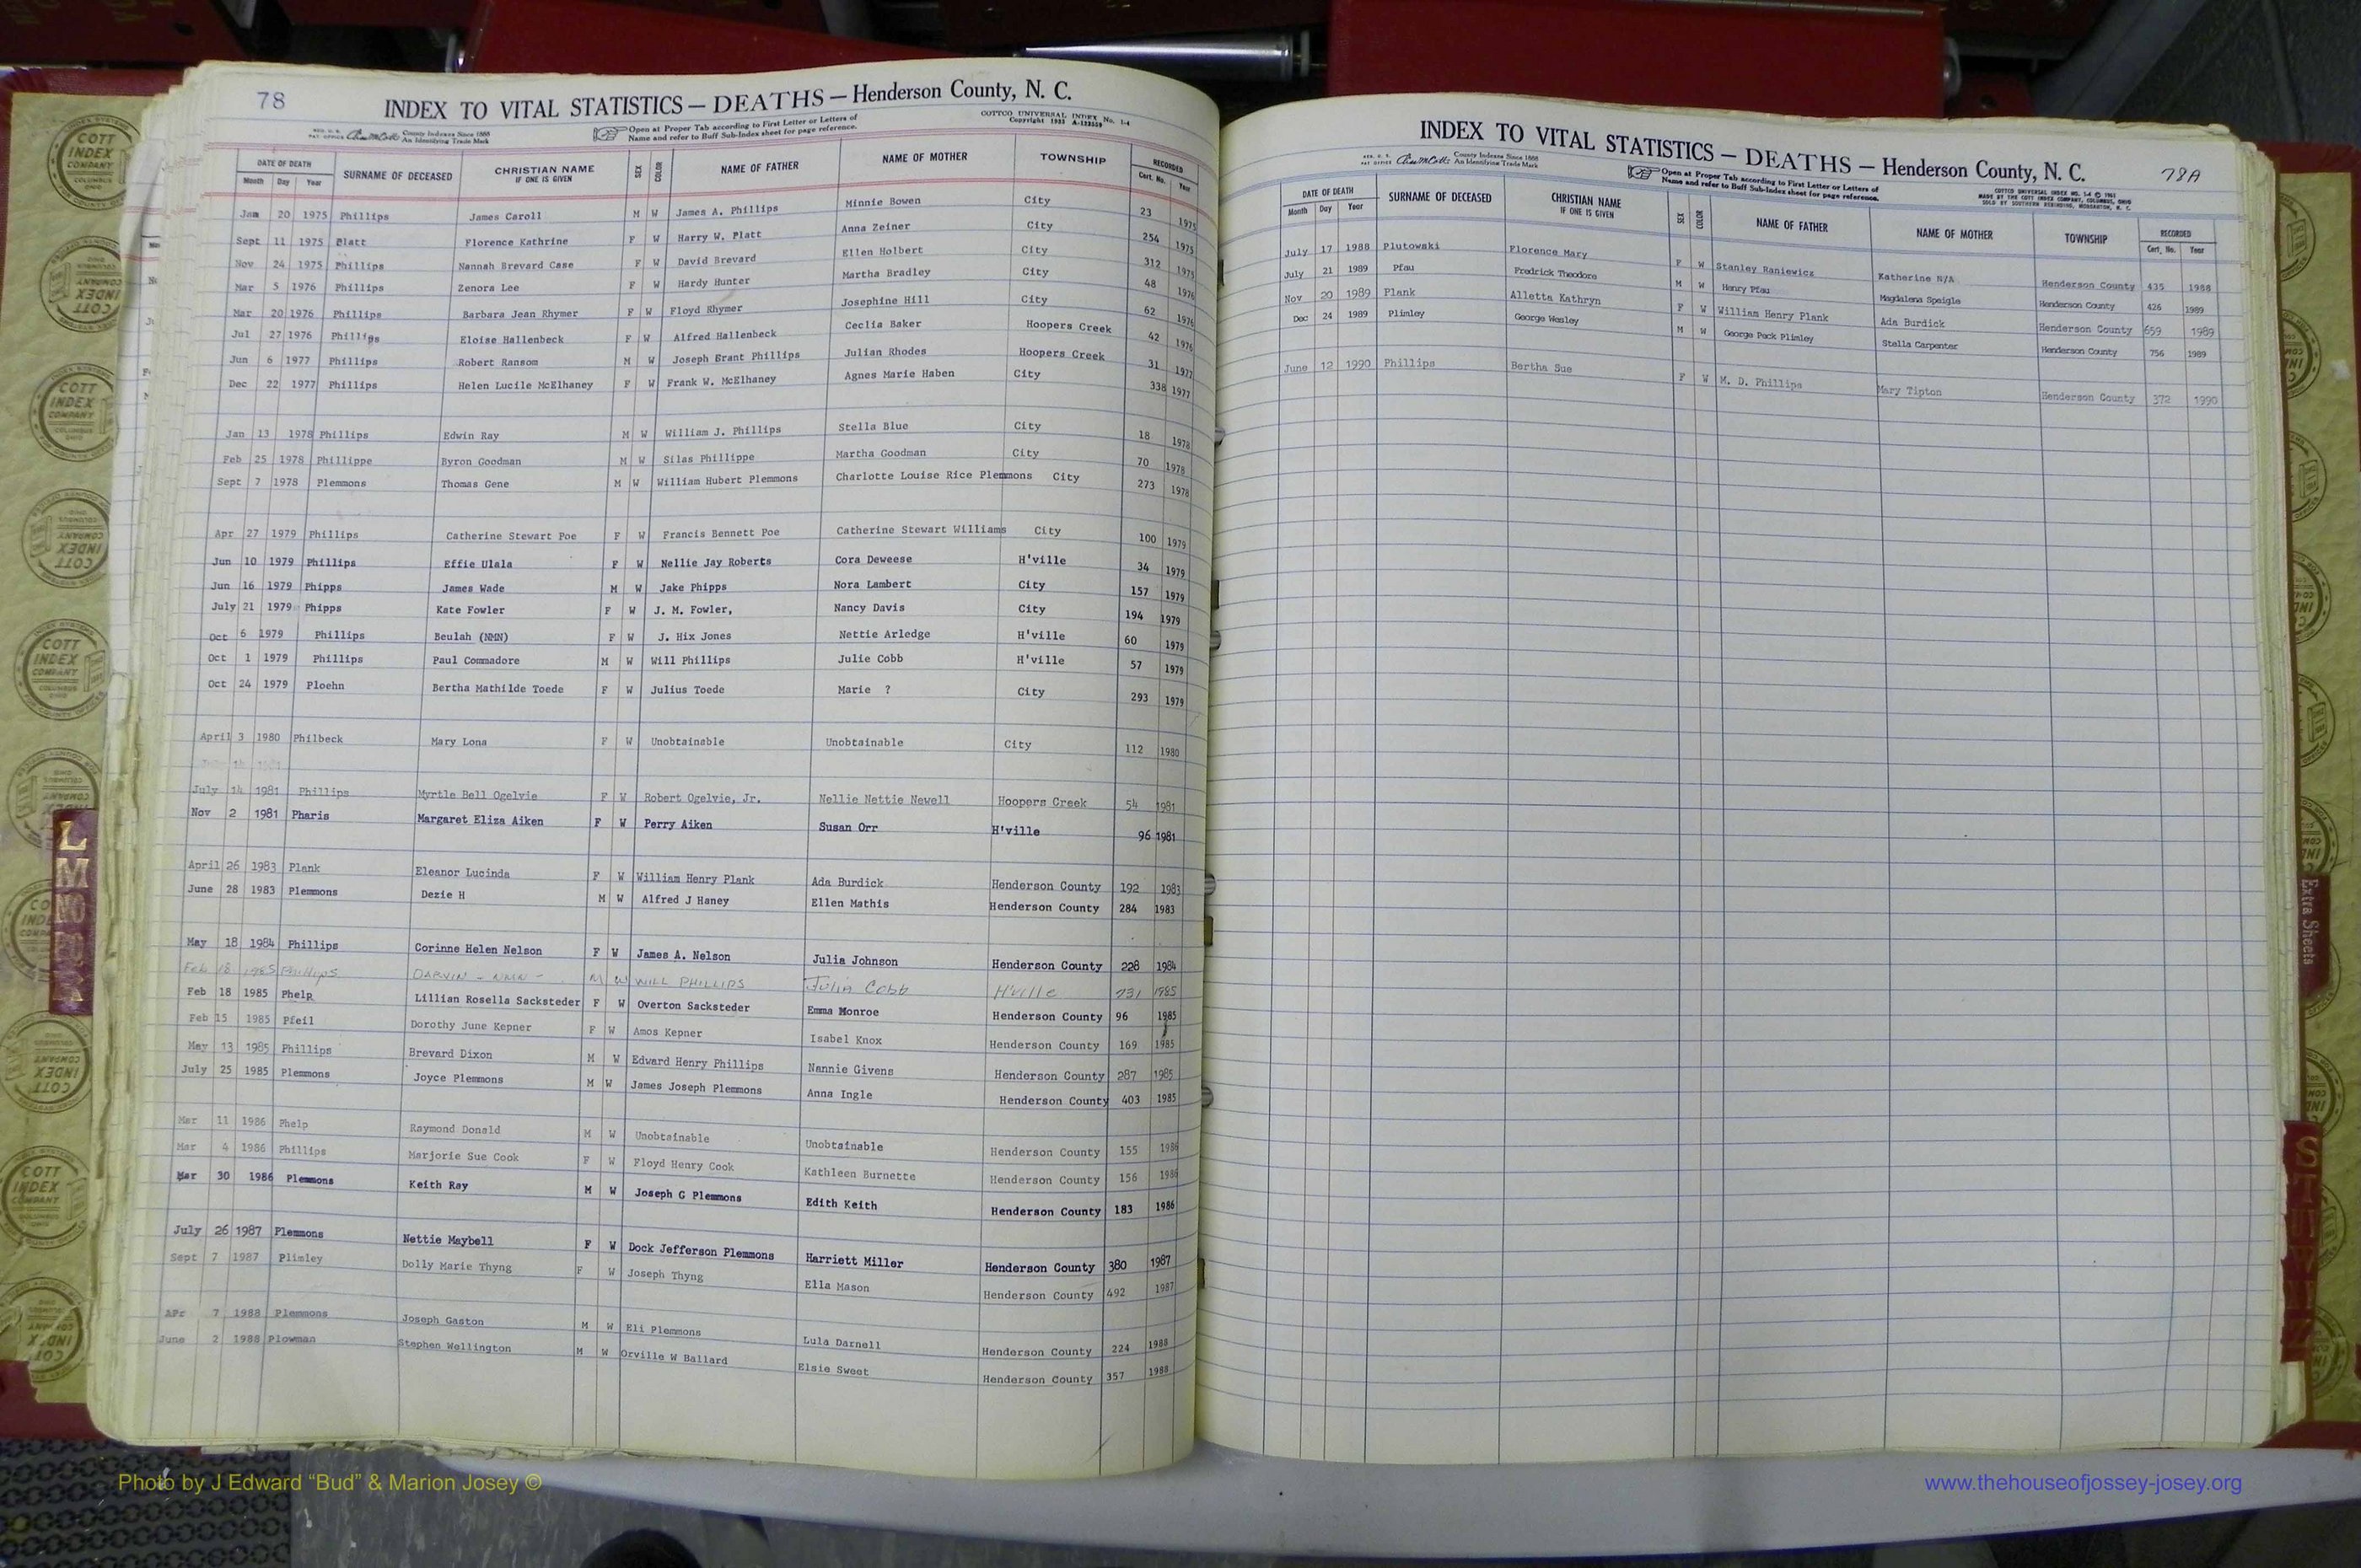 78
INDEX TO VITAL STATISTICS — DEATHS — Henderson County, N. C.
County Indexes Since 1888
An Identifying Trade Mark
Open at Proper Tab according to First Letter or Letters of
Name and refer to Buff Sub-Index sheet for page reference.
COTTCO UNIVERSAL INDEX No. 1-4
DATE OF DEATH SURNAME OF DECEASED CHRISTIAN NAME IF ONE IS GIVEN SEX COLOR NAME OF FATHER NAME OF MOTHER TOWNSHIP RECORDED
Month Day Year Cert. No. Year
Jan 20 1975 Phillips James Caroll M W James A. Phillips Minnie Bowen City 23 1975
Sept 11 1975 Platt Florence Kathrine F W Harry W. Platt Anna Zeiner City 254 1975
Nov 24 1975 Phillips Nannah Brevard Case F W David Brevard Ellen Holbert City 312 1975
Mar 5 1976 Phillips Zenora Lee F W Hardy Hunter Martha Bradley City 48 1976
Mar 20 1976 Phillips Barbara Jean Rhymer F W Floyd Rhymer Josephine Hill City 62 1976
Jul 27 1976 Phillips Eloise Hallenbeck F W Alfred Hallenbeck Ceclia Baker Hoopers Creek 42 1976
Jun 6 1977 Phillips Robert Ransom M W Joseph Brant Phillips Julian Rhodes Hoopers Creek 31 1977
Dec 22 1977 Phillips Helen Lucile McElhaney F W Frank W. McElhaney Agnes Marie Haben City 338 1977
Jan 13 1978 Phillips Edwin Ray M W William J. Phillips Stella Blue City 18 1978
Feb 25 1978 Phillippe Byron Goodman M W Silas Phillippe Martha Goodman City 70 1978
Sept 7 1978 Plemmons Thomas Gene M W William Hubert Plemmons Charlotte Louise Rice Plemmons City 273 1978
Apr 27 1979 Phillips Catherine Stewart Poe F W Francis Bennett Poe Catherine Stewart Williams City 100 1979
Jun 10 1979 Phillips Effie Ulala F W Nellie Jay Roberts Cora Deweese H'ville 34 1979
Jun 16 1979 Phipps James Wade M W Jake Phipps Nora Lambert City 157 1979
July 21 1979 Phipps Kate Fowler F W J. M. Fowler, Nancy Davis City 194 1979
Oct 6 1979 Phillips Beulah (NMN) F W J. Hix Jones Nettie Arledge H'ville 60 1979
Oct 1 1979 Phillips Paul Commadore M W Will Phillips Julie Cobb H'ville 57 1979
Oct 24 1979 Ploehn Bertha Mathilde Toede F W Julius Toede Marie ? City 293 1979
April 3 1980 Philbeck Mary Lona F W Unobtainable Unobtainable City 112 1980
July 14 1981 Phillips Myrtle Bell Ogelvie F W Robert Ogelvie, Jr. Nellie Nettie Newell Hoopers Creek 54 1981
Nov 2 1981 Pharis Margaret Eliza Aiken F W Perry Aiken Susan Orr H'ville 96 1981
April 26 1983 Plank Eleanor Lucinda F W William Henry Plank Ada Burdick Henderson County 192 1983
June 28 1983 Plemmons Dezie H M W Alfred J Haney Ellen Mathis Henderson County 284 1983
May 18 1984 Phillips Corinne Helen Nelson F W James A. Nelson Julia Johnson Henderson County 228 1984
Feb 18 1985 Phillips DARVIN - NMN - M W WILL PHILLIPS Julia Cobb H'ville 1985
Feb 18 1985 Phelp Lillian Rosella Sacksteder F W Overton Sacksteder Emma Monroe Henderson County 96 1985
Feb 15 1985 Pfeil Dorothy June Kepner F W Amos Kepner Isabel Knox Henderson County 169 1985
May 13 1985 Phillips Brevard Dixon M W Edward Henry Phillips Nannie Givens Henderson County 287 1985
July 25 1985 Plemmons Joyce Plemmons M W James Joseph Plemmons Anna Ingle Henderson County 403 1985
Mar 11 1986 Phelp Raymond Donald M W Unobtainable Unobtainable Henderson County 155 1986
Mar 4 1986 Phillips Marjorie Sue Cook F W Floyd Henry Cook Kathleen Burnette Henderson County 156 1986
Mar 30 1986 Plemmons Keith Ray M W Joseph G Plemmons Edith Keith Henderson County 183 1986
July 26 1987 Plemmons Nettie Maybell F W Dock Jefferson Plemmons Harriett Miller Henderson County 380 1987
Sept 7 1987 Plimley Dolly Marie Thyng F W Joseph Thyng Ella Mason Henderson County 492 1987
Apr 7 1988 Plemmons Joseph Gaston M W Eli Plemmons Lula Darnell Henderson County 224 1988
June 2 1988 Plowman Stephen Wellington M W Orville W Ballard Elsie Sweet Henderson County 357 1988
INDEX TO VITAL STATISTICS — DEATHS — Henderson County, N. C.
78A
County Indexes Since 1888
An Identifying Trade Mark
Open at Proper Tab according to First Letter or Letters of
Name and refer to Buff Sub-Index sheet for page reference.
DATE OF DEATH SURNAME OF DECEASED CHRISTIAN NAME IF ONE IS GIVEN SEX COLOR NAME OF FATHER NAME OF MOTHER TOWNSHIP RECORDED
Month Day Year Cert. No. Year
July 17 1988 Plutowski Florence Mary F W Stanley Raniewicz Katherine N/A Henderson County 435 1988
July 21 1989 Pfau Fredrick Theodore M W Henry Pfau Magdalena Speigle Henderson County 426 1989
Nov 20 1989 Plank Alletta Kathryn F W William Henry Plank Ada Burdick Henderson County 659 1989
Dec 24 1989 Plimley George Wesley M W George Peck Plimley Stella Carpenter Henderson County 756 1989
June 12 1990 Phillips Bertha Sue F W M. D. Phillips Mary Tipton Henderson County 372 1990
COTT INDEX COMPANY
L
M
Extra Sheets
S
Photo by J Edward “Bud” & Marion Josey ©
www.thehouseofjossey-josey.org